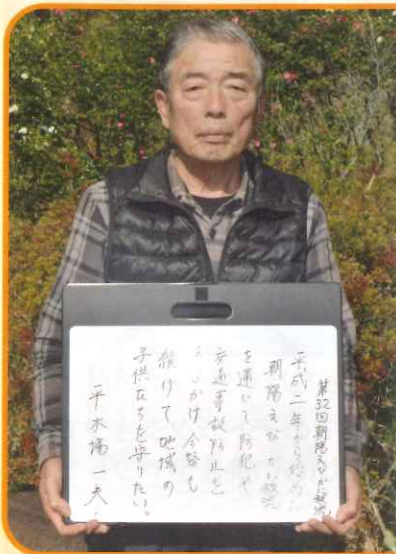 第32回朝陽えびがね祭
平成二年から始めた
朝陽えびがね祭
を通じて防犯や
交通事故防止を
かけ今後も
続けて地域の
子供たちを守りたい。
平水場一夫